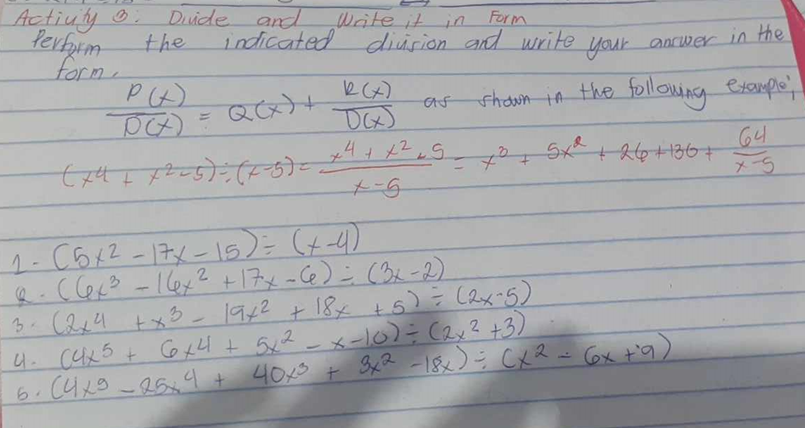 Activity 3: Divide and Write it in Form
Perform the indicated division and write your answer in the
form.
P(x)/D(x) = Q(x) + R(x)/D(x) as shown in the following example;
(x4 + x² - 5) ÷ (x-5) = x4 + x² - 5/x - 5 = x³ + 5x² + 26 + 130 + 64/x-5
1. (5x² - 17x - 15) ÷ (x-4)
2. (6x³ - 16x² + 17x - 6) ÷ (3x-2)
3. (2x4 + x³ - 19x² + 18x + 5) ÷ (2x-5)
4. (4x5 + 6x4 + 5x² - x-10) ÷ (2x² +3)
5. (4x5 - 25x4 + 40x³ + 3x² - 18x) ÷ (x² - 6x + 9)